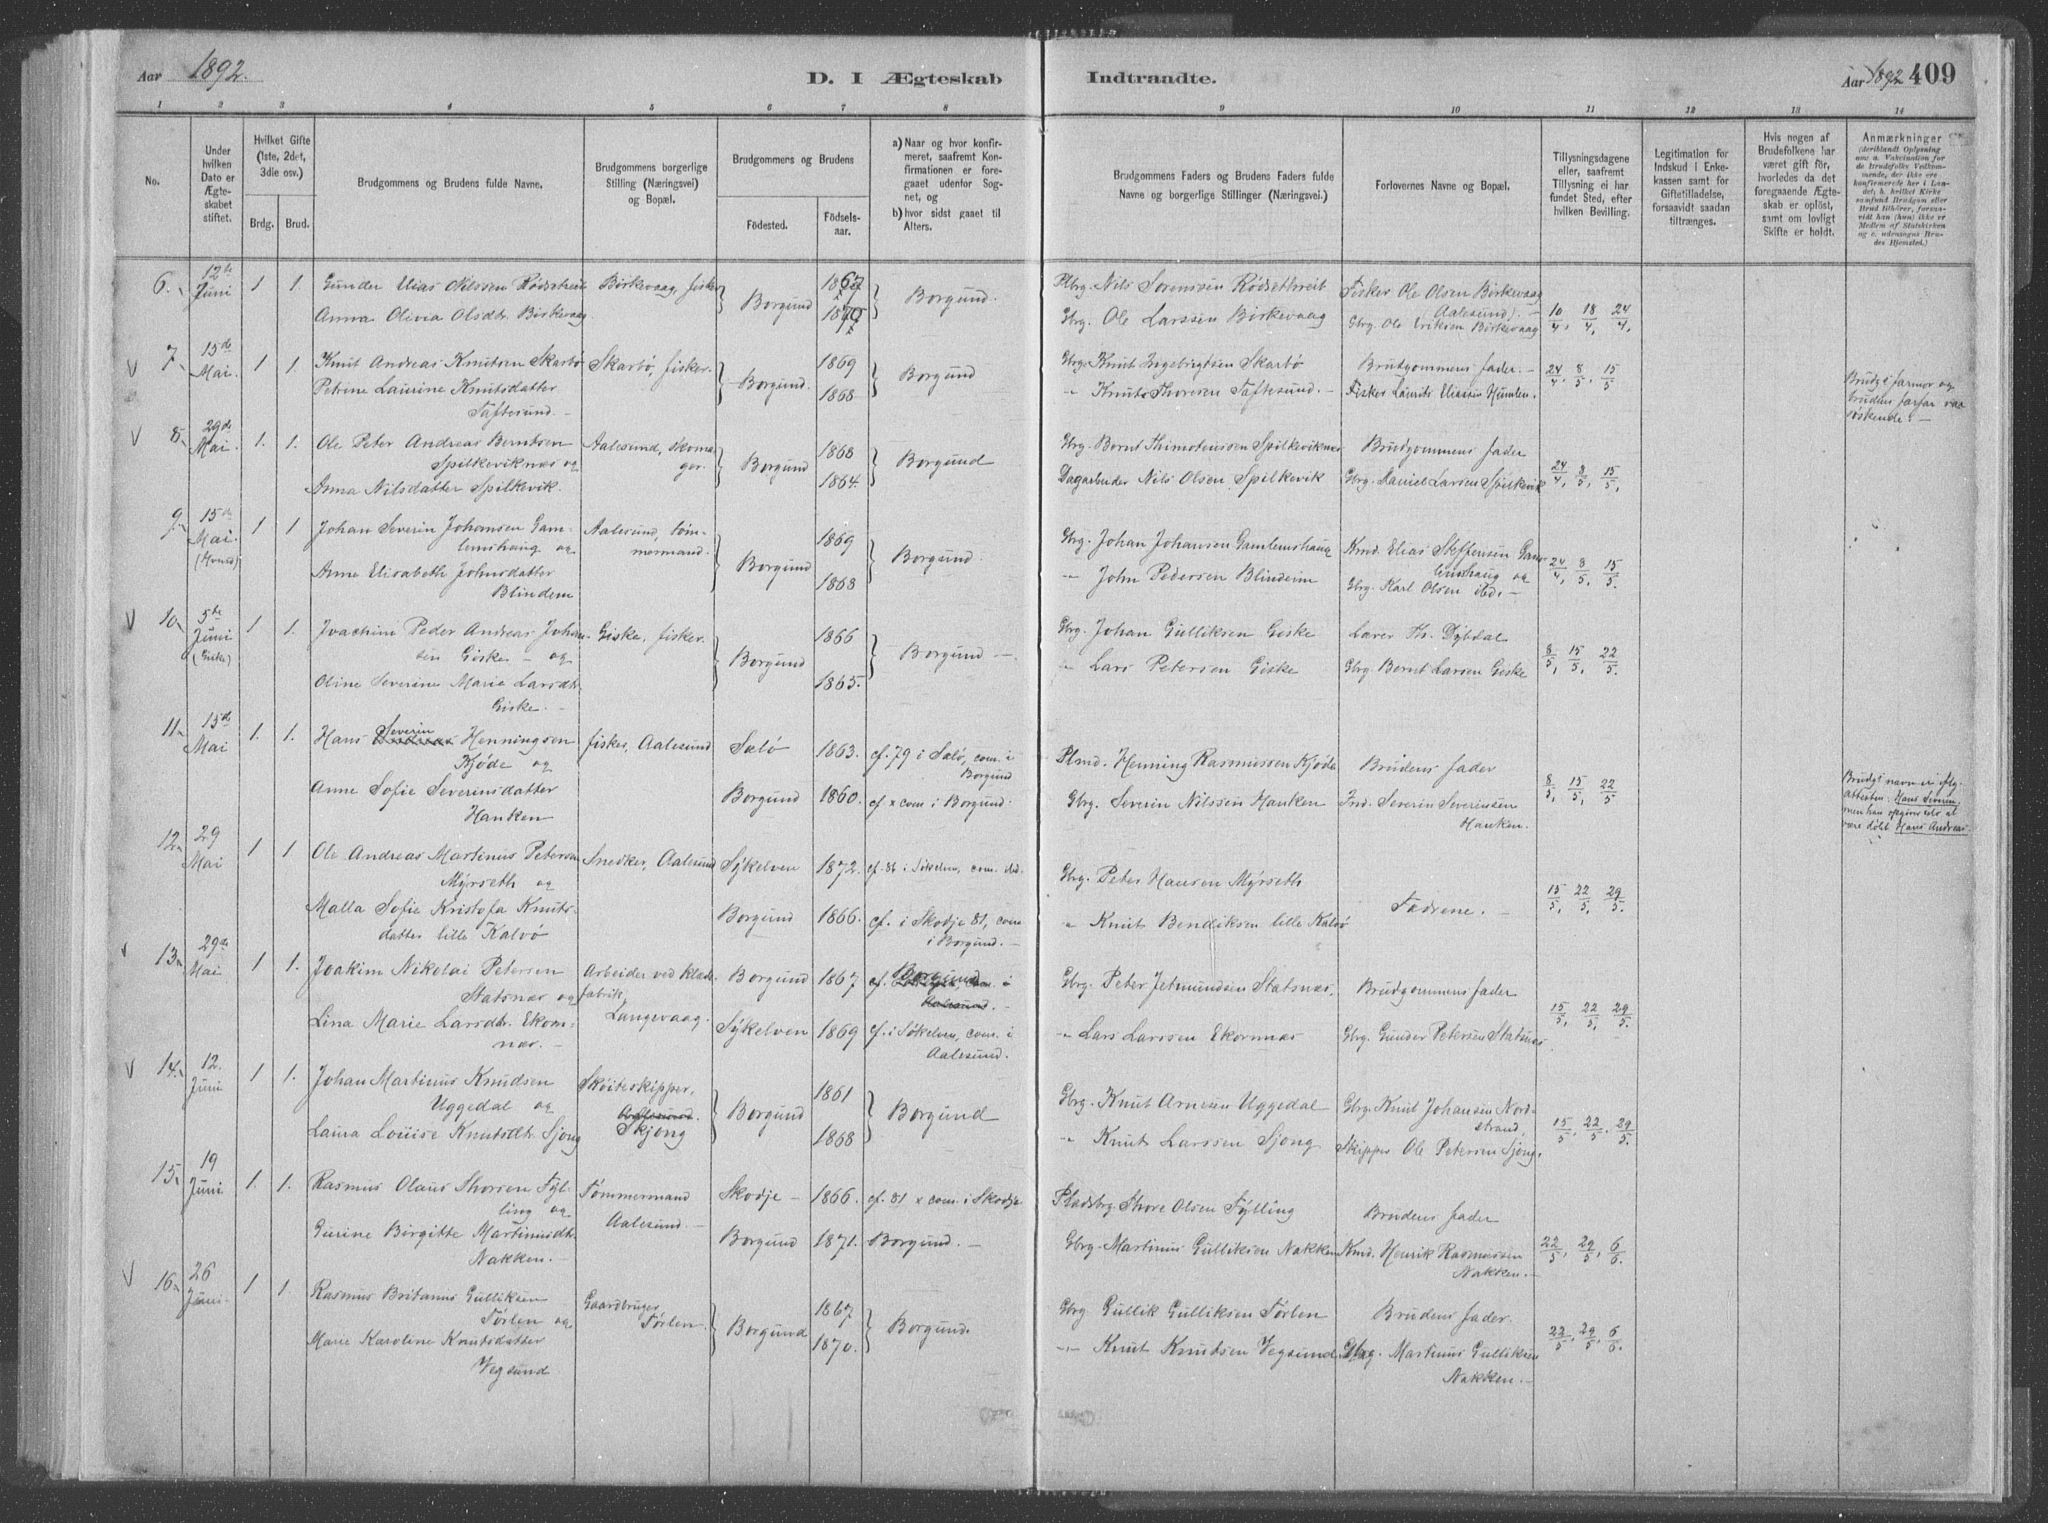 Aar 1892.
D. I Ægteskab
Indtraadte.
Aar 1892 409
1 2 3 4 5 6 7 8 9 10 11 12 13 14
No.
Under hvilken Dato er Ægteskabet stiftet.
Hvilket Gifte (1ste, 2det, 3die osv.)
Brdg. Brud.
Brudgommens og Brudens fulde Navne.
Brudgommens borgerlige Stilling (Næringsvei) og Bopæl.
Brudgommens og Brudens
Födested. Födselsaar.
a) Naar og hvor konfirmeret, saafremt Konfirmationen er foregaaet udenfor Sognet, og
b) hvor sidst gaaet til Alters.
Brudgommens Faders og Brudens Faders fulde Navne og borgerlige Stillinger (Næringsvei.)
Forlovernes Navne og Bopæl.
Tillysningsdagene eller, saafremt Tillysning ei har fundet Sted, efter hvilken Bevilling.
Legitimation for Indskud i Enkekassen samt for Giftetilladelse, forsaavidt saadan tiltrænges.
Hvis nogen af Brudefolkene har været gift för, hvorledes da det foregaaende Ægteskab er oplöst, samt om lovligt Skifte er holdt.
Anmærkninger
6. 12te Juni 1 1. Gunder Elias Nilssen Rødsethreit Birkevaag, fisker Borgund 1867 Borgund. Plbrg. Nils Sørenssen Rødsethreit Fisker Ole Olsen Birkevaag
Anna Olivia Olsdtr. Birkevaag 1870 Gbrg. Ole Larssen Birkevaag (Aalesund). Gbrg. Ole Eriksen Birkevaag 10/4, 18/4, 24/4.
V 7. 15de Mai. 1 1. Knut Andreas Knutsen Skarbø Skarbø, fisker. Borgund. 1869 Borgund Gbrg. Knut Ingebrigtsen Skarbø Brudgommens fader. 24/4, 8/5, 15/5
Petrine Laurine Knutsdatter 1868 " Knut Thoresen Taftesund. Fisker Laurits Eliassen Humlen. Brudg.s farmor og
Taftesund. brudens farfar var
søskende.
V 8. 29de Mai 1. 1. Ole Peter Andreas Berntsen Aalesund, skomager. Borgund 1868 Borgund Gbrg. Bernt Thimoteussen Spilkeviknæs Brudgommens fader
Spilkeviknæs og
Anna Nilsdatter Spilkevik. 1864. Dagarbeider Nils Olsen Spilkevik Gbrg. Daniel Larsen Spilkevik 24/4, 8/5, 15/5.
9. 15de Mai 1 1 Johan Severin Johansen Gamlemshaug og Aalesund, tømmermand. Borgund 1869 Borgund. Gbrg. Johan Johansen Gamlemshaug Kmd. Elias Steffensen Gamlemshaug og
Anne Elisabeth Johnsdatter 1868 " John Pedersen Blindeim Gbrg. Karl Olsen ibd. 24/4, 8/5, 15/5.
Blindem
V 10. 5te Juni (Giske) 1 1. Joachim Peder Andreas Johansen Giske og Giske, fisker. Borgund 1866 Borgund Gbrg. Johan Gulliksen Giske Lærer Th. Dybdal 8/5, 15/5, 22/5.
Oline Severine Marie Larsdtr. 1865. " Lars Petersen Giske Gbrg. Bernt Larsen Giske
Giske.
11. 15de Mai 1. 1. Hans Severin Henningsen fisker, Aalesund Sølø 1863. cf. 79 i Sølø, com. i Borgund Plmd. Henning Rasmussen Kjøde Brudens fader
Kjøde og
Anne Sofie Severinsdatter Borgund 1860. cf x com i Borgund. Gbrg. Severin Nilssen Hanken Frd. Severin Severinsen 8/5, 15/5, 22/5
Hanken Hanken.
Brudg.s navn er iflg. attesten: Hans Severin, men han opgives selv at være døbt Hans Andreas.
12. 29 Mai 1 1. Ole Andreas Martinus Petersen Snedker, Aalesund Sykelven 1872. cf. 86 i Søkelven, com. ibd. Gbrg. Peter Hansen Myrseth
Myrseth og
Malla Sofie Kristofa Knutsdatter lille Kalvø Borgund 1866. cf. i Skodje 81, com i Borgund. " Knut Bendiksen lille Kalvø Fædrene. 15/5, 22/5, 29/5.
13. 29de Mai 1 1. Joakim Nikolai Petersen Arbeider ved Klædefabrik, Borgund 1867 cf. Borgund Gbrg. Peter Jetmundsen Statsnæs, Brudgommens fader
Statsnæs og Langevaag.
Lina Marie Larsdtr. Ekornnæs. Sykelven 1869 cf. i Søkelven, com. i Aalesund. " Lars Larssen Ekornnæs Gbrg. Gunder Petersen Statsnæs 15/5, 22/5, 29/5.
V 14. 12. Juni 1 1. Johan Martinus Knudsen Skøiteskipper, Borgund 1861 Borgund Gbrg. Knut Arnesen Uggedal Gbrg. Knut Johansen Nordstrand,
Uggedal og Aalesund. Skjong
Laura Louise Knutsdtr. Sjong 1868 " Knut Larssen Sjong Skipper Ole Petersen Sjong. 15/5, 22/5, 29/5.
15. 19 Juni 1. 1. Rasmus Olaus Thorsen Fylling og Tømmermand Aalesund. Skodje 1866. cf. 81 x com. i Skodje Pladsbrg. Thore Olsen Fylling Brudens fader
Gurine Birgitte Martinusdtr. Borgund 1871. Borgund. Gbrg. Martinus Gulliksen Nakken Kmd. Henrik Rasmussen 22/5, 29/5, 6/6.
Nakken. Nakken.
V 16. 26 Juni 1 1. Rasmus Britanus Gulliksen Gaardbruger, Tørlen. Borgund 1867 Borgund. Gbrg. Gullik Gulliksen Tørlen Brudens fader.
Tørlen og
Marie Karoline Knutsdatter 1870. " Knut Knudsen Vegsund Gbrg. Martinus Gulliksen 22/5, 29/5, 6/6.
Vegsund Nakken.